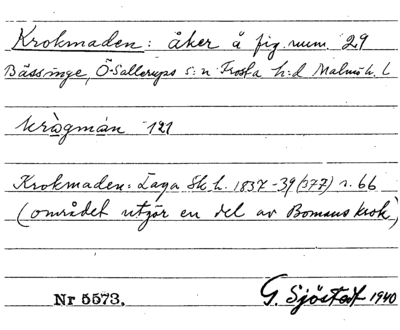 Krokmaden: åker å fig. num. 29
Bässinge, Ö. Sallerups s:n Frosta h:d Malmöh. L
kràgmán 121
Krokmaden: Laga Sk. h. 1837-39 (377) s. 66
(området utgör en del av Bomans krok)
Nr 5573. G. Sjöstedt 1940